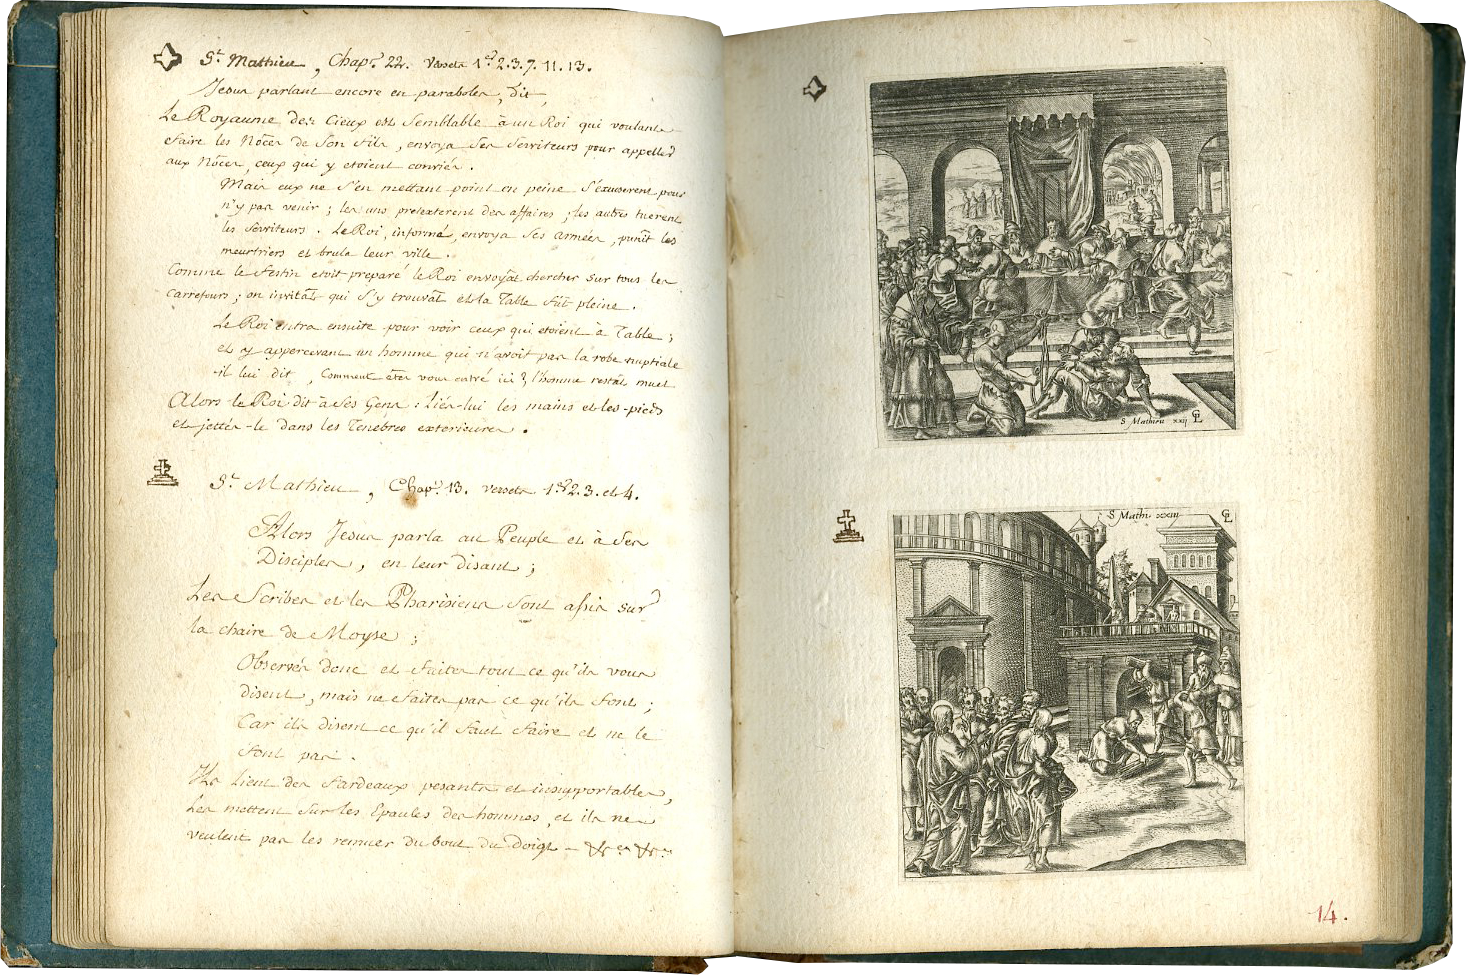 St. Mathieu, Chapre. 22. Versets 1er 2.3.7.11.13.
Jesus parlant encore en paraboles, dit,
Le Royaume des Cieux est Semblable à un Roi qui voulant
faire les Nôces de Son fils, envoya Ses Serviteurs pour appeller
aux Nôces, ceux qui y etoient conviés.
Mais eux ne S'en mettant point en peine S'excuserent pour
n'y pas venir; les uns pretexterent des affaires, les autres tuerent
les Serviteurs. Le Roi, informé, envoya Ses Armées, punit les
meurtriers et brula leur ville.
Comme le festin etoit preparé le Roi envoyat chercher sur tous les
Carrefours; on invitât qui S'y trouvât et la Table fut pleine.
Le Roi entra ensuite pour voir ceux qui etoient à Table;
et y appercevant un homme qui n'avoit pas la robe nuptiale
il lui dit, Comment êtes vous entré ici? l'homme restât muet
Alors le Roi dit à Ses Gens: Liés-lui les mains et les pieds
et jettés-le dans les Tenebres exterieures.
St. Mathieu, Chapre. 13. versets 1er 2.3. et 4.
Alors Jesus parla au Peuple et à Ses
Disciples, en leur disant;
Les Scribes et les Pharisiens Sont assis sur
la chaire de Moyse;
Observés donc et faites tout ce qu'ils vous
disent, mais ne faites pas ce qu'ils font;
Car ils disent ce qu'il faut faire et ne le
font pas.
Ils lient des fardeaux pesants et insupportables,
Les mettent Sur les Epaules des hommes, et ils ne
veulent pas les remuer du bout du Doigt - &ca &ca
S Mathieu xxij GL
S Mathi xxiii GL
14.